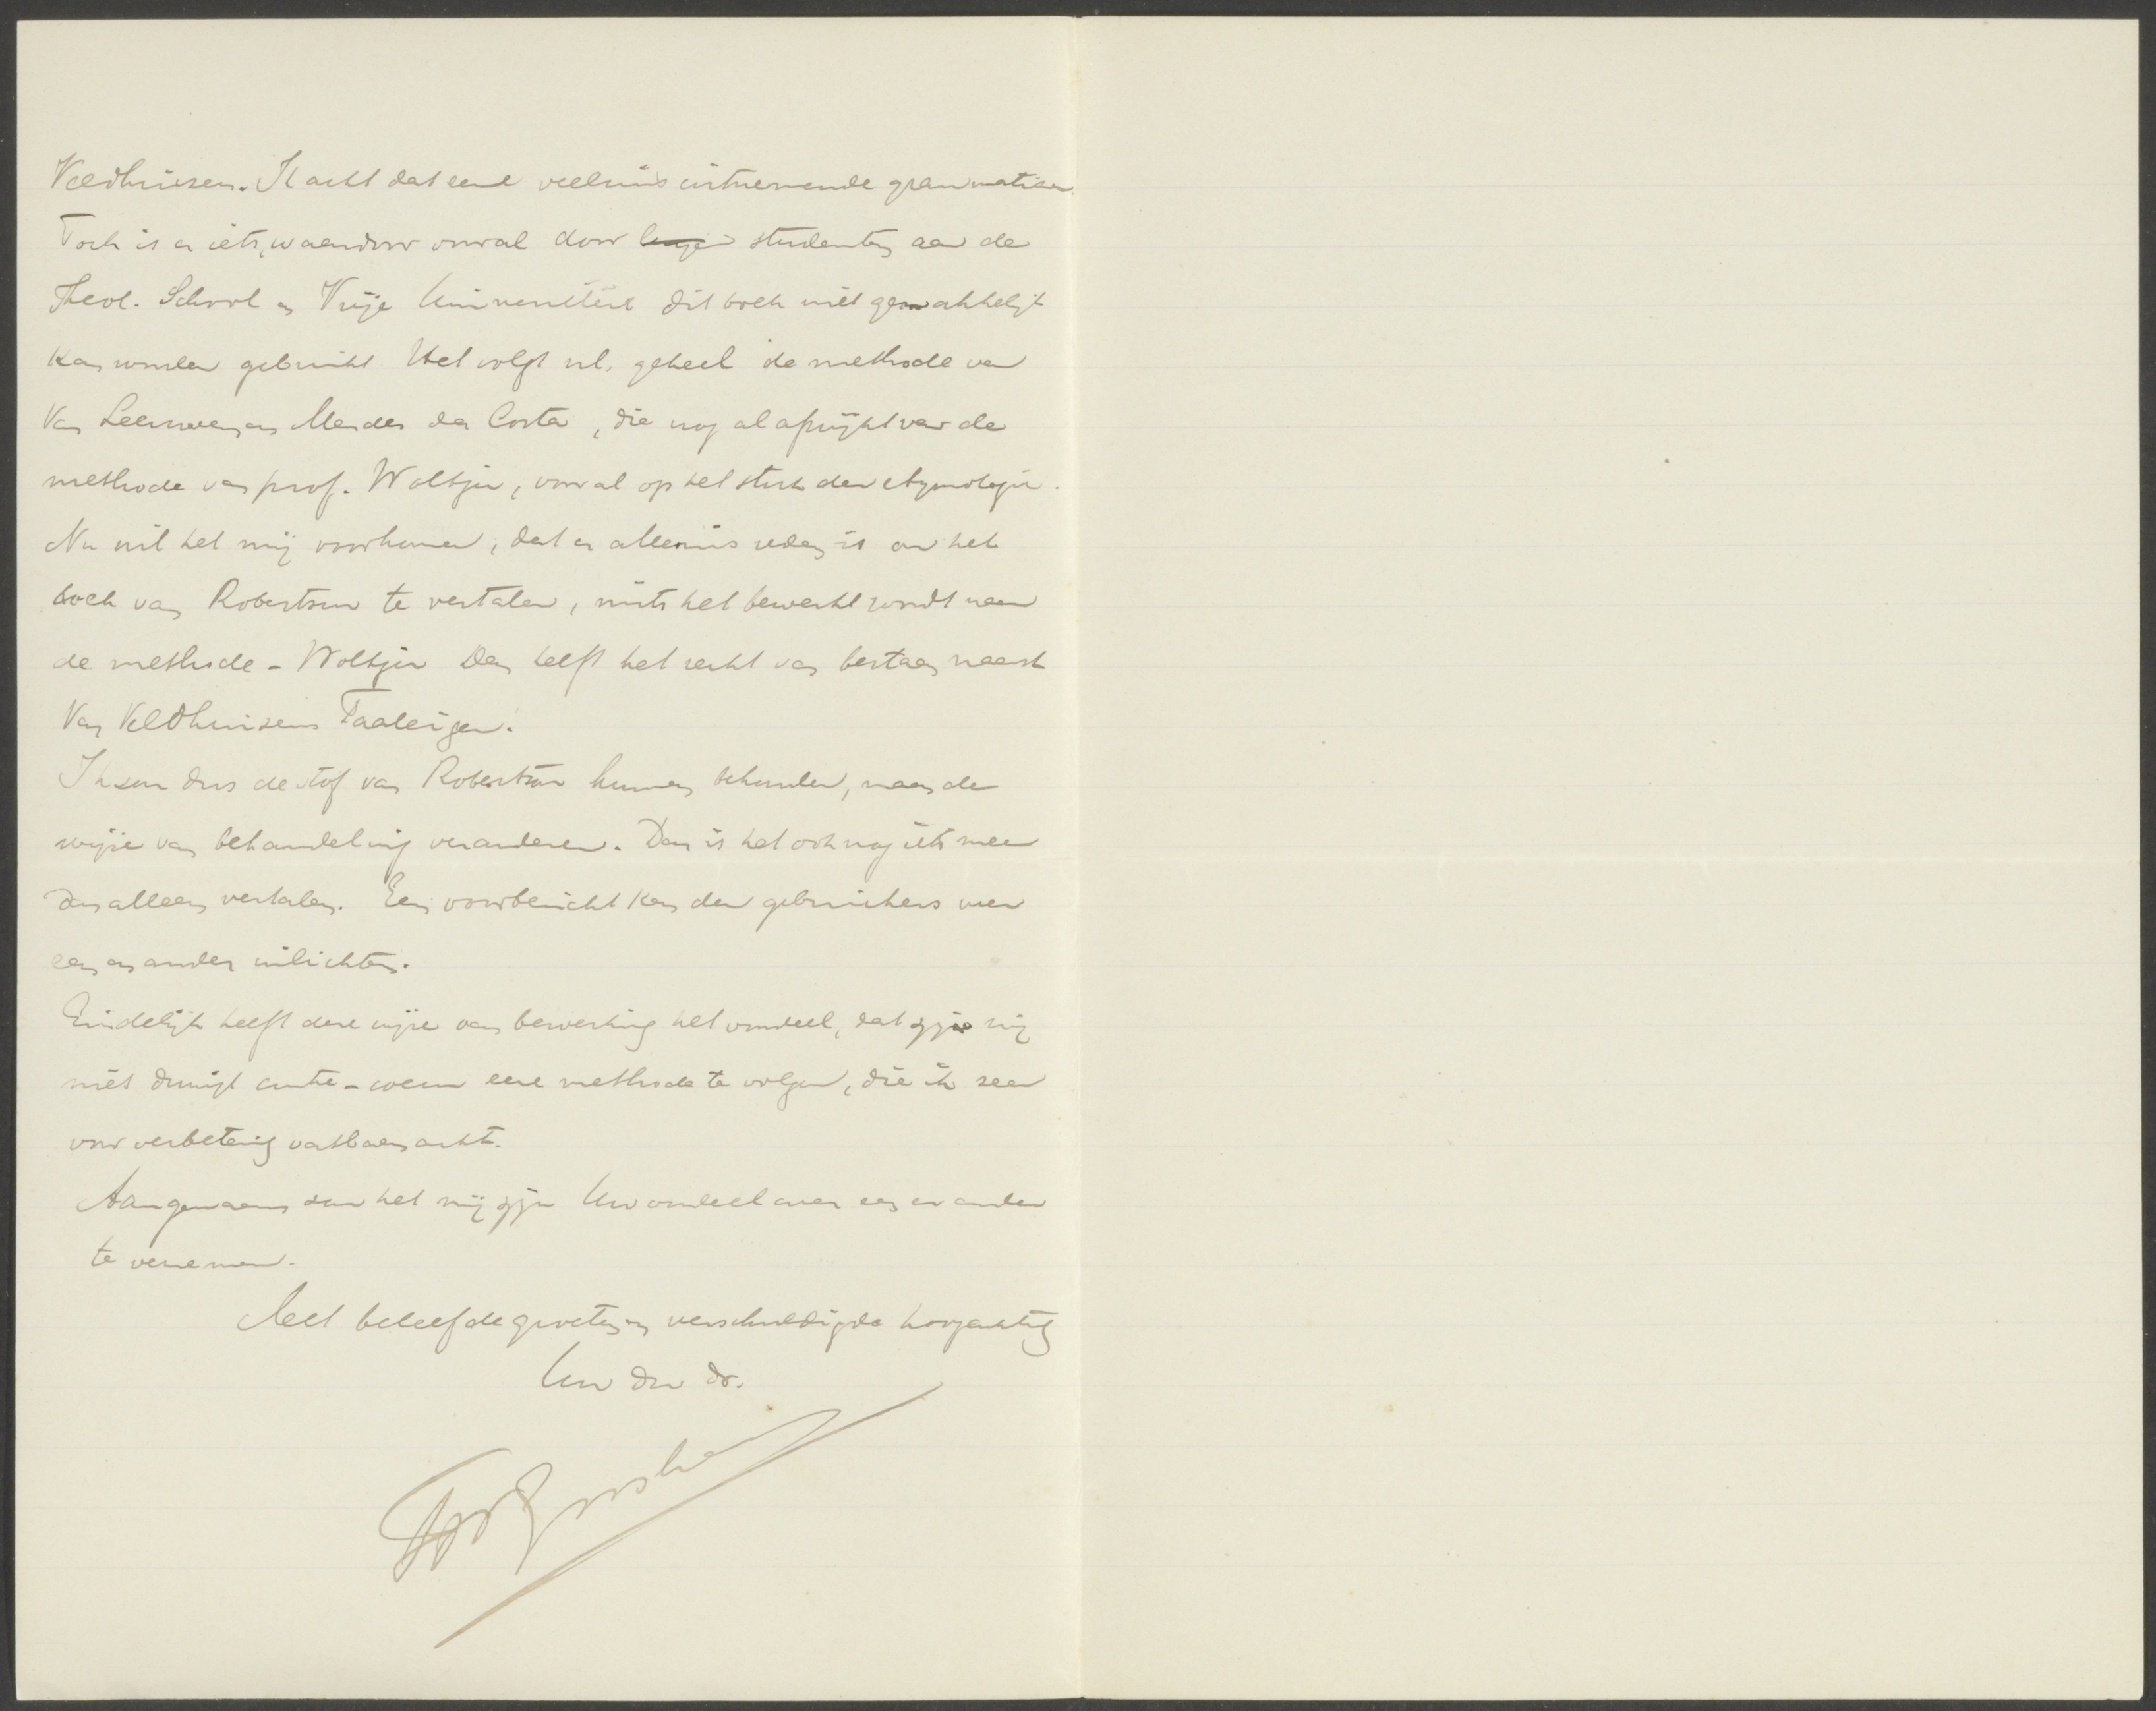 Veldhuizen. Ik acht dat eene veelzins uitnemende grammatica.
Toch is er iets, waardoor vooral door studenten aan de
Theol. School en Vrije Universiteit dit boek niet gemakkelijk
kan worden gebruikt. Het volgt nl. geheel de methode van
Van Leeuwen en Mendes da Costa, die nog al afwijkt van de
methode van prof. Woltjer, vooral op het stuk der etymologie.
Nu wil het mij voorkomen, dat er alleszins reden is om het
boek van Robertson te vertalen, mits het bewerkt wordt naar
de methode-Woltjer. Dan heeft het recht van bestaan naast
Van Veldhuizens Taaleigen.
Ik zou dus de stof van Robertson kunnen behouden, maar de
wijze van behandeling veranderen. Dan is het ook nog iets meer
dan alleen vertalen. Een voorbericht kan den gebruikers over
een en ander inlichten.
Eindelijk heeft deze wijze van bewerking het voordeel, dat zij mij
niet dwingt contre-coeur eene methode te volgen, die ik zeer
voor verbetering vatbaar acht.
Aangenaam zou het mij zijn Uw oordeel over een en ander
te vernemen.
Met beleefde groeten en verschuldigde hoogachting
Uw dw dr.